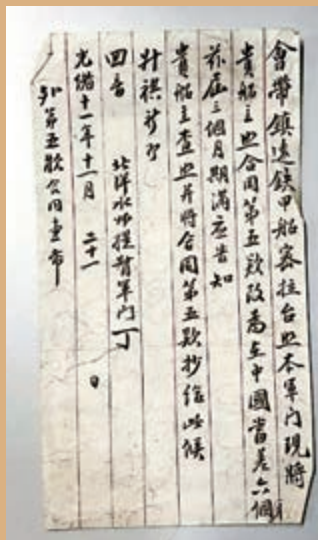 會帶鎮遠鉄甲船密拉台照本軍门現將
貴船主照合同第五欵改為在中國當差六個月
茲屆三個月期滿應告知
貴船主查照并將合同第五欵抄给此候
升祺并即
回音
北洋水师提督軍门丁
光緒十一年十一月 二十一 日
第五欵合同